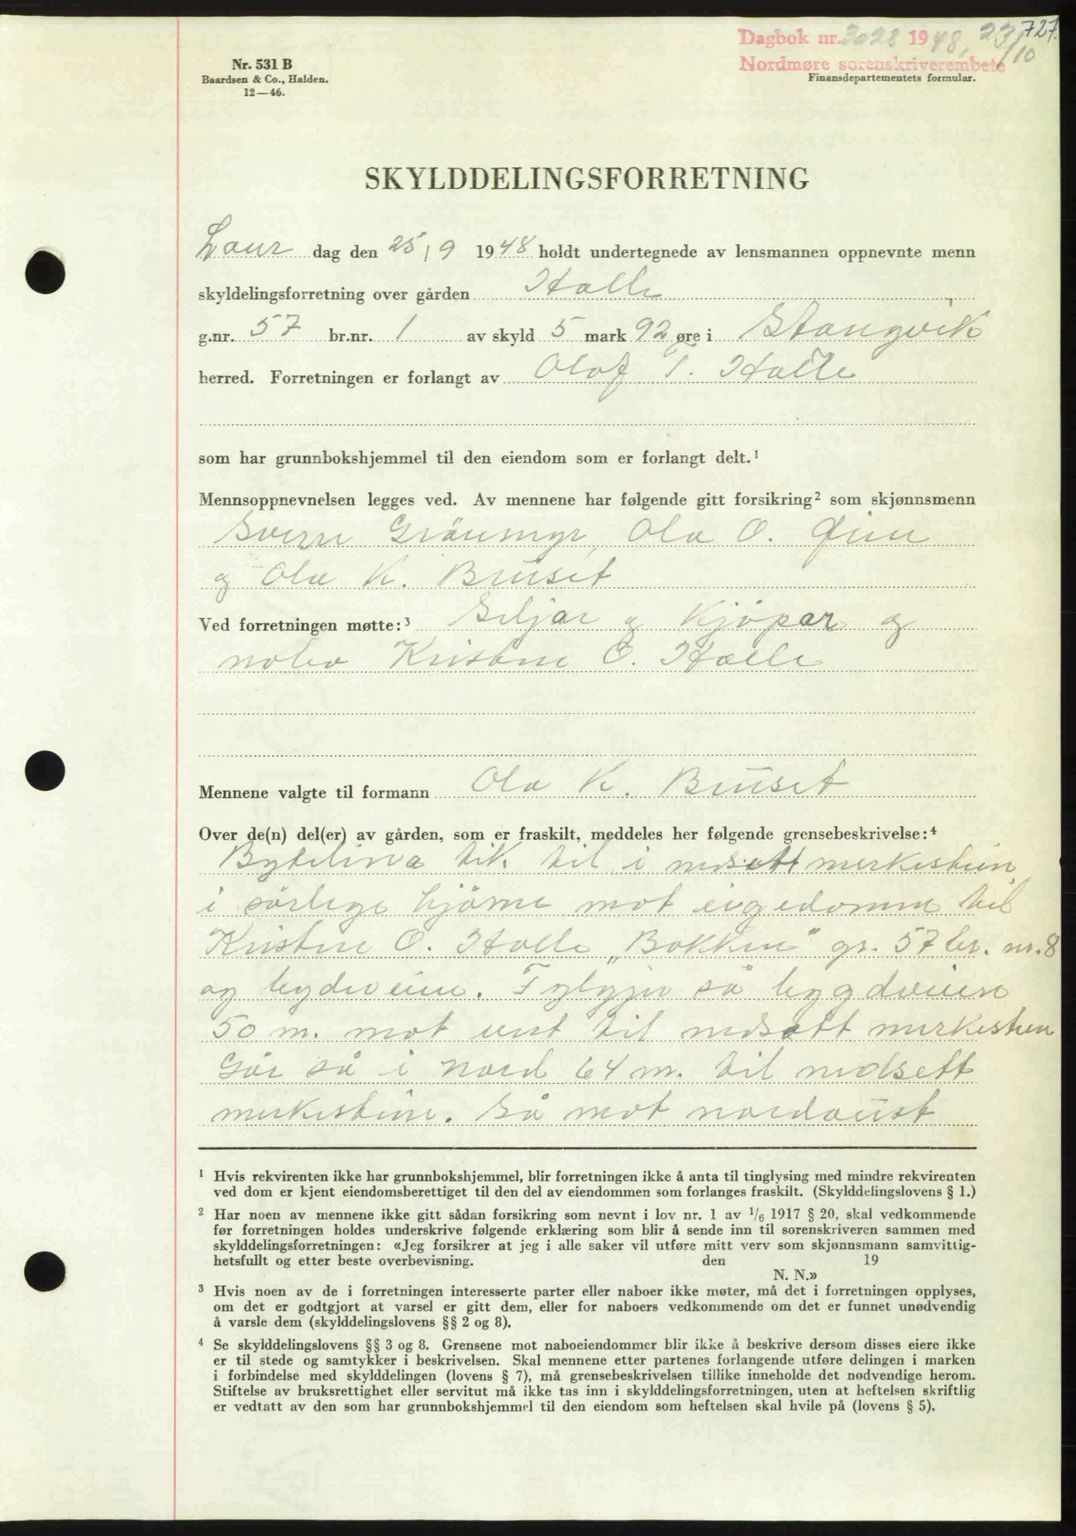 727.
Dagbok nr. 3028 1948, 23/10
Nordmøre sorenskriverembete
Nr. 531 B
Baardsen & Co., Halden.
12—46.
Finansdepartementets formular.
SKYLDDELINGSFORRETNING
Laur dag den 25/9 1948 holdt undertegnede av lensmannen oppnevnte menn
skyldelingsforretning over gården Halle
g.nr. 57 br.nr. 1 av skyld 5 mark 92 øre i Stangvik
herred. Forretningen er forlangt av Olof T. Halle
som har grunnbokshjemmel til den eiendom som er forlangt delt.¹
Mennsoppnevnelsen legges ved. Av mennene har følgende gitt forsikring² som skjønnsmenn
Sverre Grönmyr, Ola O.
og Ola K. Bruset
Ved forretningen møtte:³ Seljar og Kjöpar og
nabo Kristine O. Halle
Mennene valgte til formann Ola K. Bruset
Over de(n) del(er) av gården, som er fraskilt, meddeles her følgende grensebeskrivelse:⁴
Bytelina tek til i nedsett merkestein
i sörlege hjörne mot eigedomm til
Kristine O. Halle „Bakken" gr. 57 br. nr. 8
og bygdveien. Fylgjer så bygdveien
50 m. mot vest til nedsett merkestein
Går så i nord 64 m. til nedsett
merkestein. Så mot nordaust
¹ Hvis rekvirenten ikke har grunnbokshjemmel, blir forretningen ikke å anta til tinglysing med mindre rekvirenten
ved dom er kjent eiendomsberettiget til den del av eiendommen som forlanges fraskilt. (Skylddelingslovens § 1.)
² Har noen av mennene ikke gitt sådan forsikring som nevnt i lov nr. 1 av 1/6 1917 § 20, skal vedkommende
før forretningen holdes underskrive følgende erklæring som blir å sende inn til sorenskriveren sammen med
skylddelingsforretningen: «Jeg forsikrer at jeg i alle saker vil utføre mitt verv som skjønnsmann samvittig-
hetsfullt og etter beste overbevisning. den 19
N. N.»
³ Hvis noen av de i forretningen interesserte parter eller naboer ikke møter, må det i forretningen opplyses,
om det er godtgjort at varsel er gitt dem, eller for naboers vedkommende om det er funnet unødvendig
å varsle dem (skylddelingslovens §§ 2 og 8).
⁴ Se skylddelingslovens §§ 3 og 8. Grensene mot naboeiendommer blir ikke å beskrive dersom disses eiere ikke
er til stede og samtykker i beskrivelsen. Skal mennene etter partenes forlangende utføre delingen i marken
i forbindelse med skylddelingen (lovens § 7), må grensebeskrivelsen tillike inneholde det nødvendige herom.
Stiftelse av bruksrettighet eller servitut må ikke tas inn i skylddelingsforretningen, uten at heftelsen skriftlig
er vedtatt av den som har grunnbokshjemmel til den eiendom som heftelsen skal hvile på (lovens § 5).